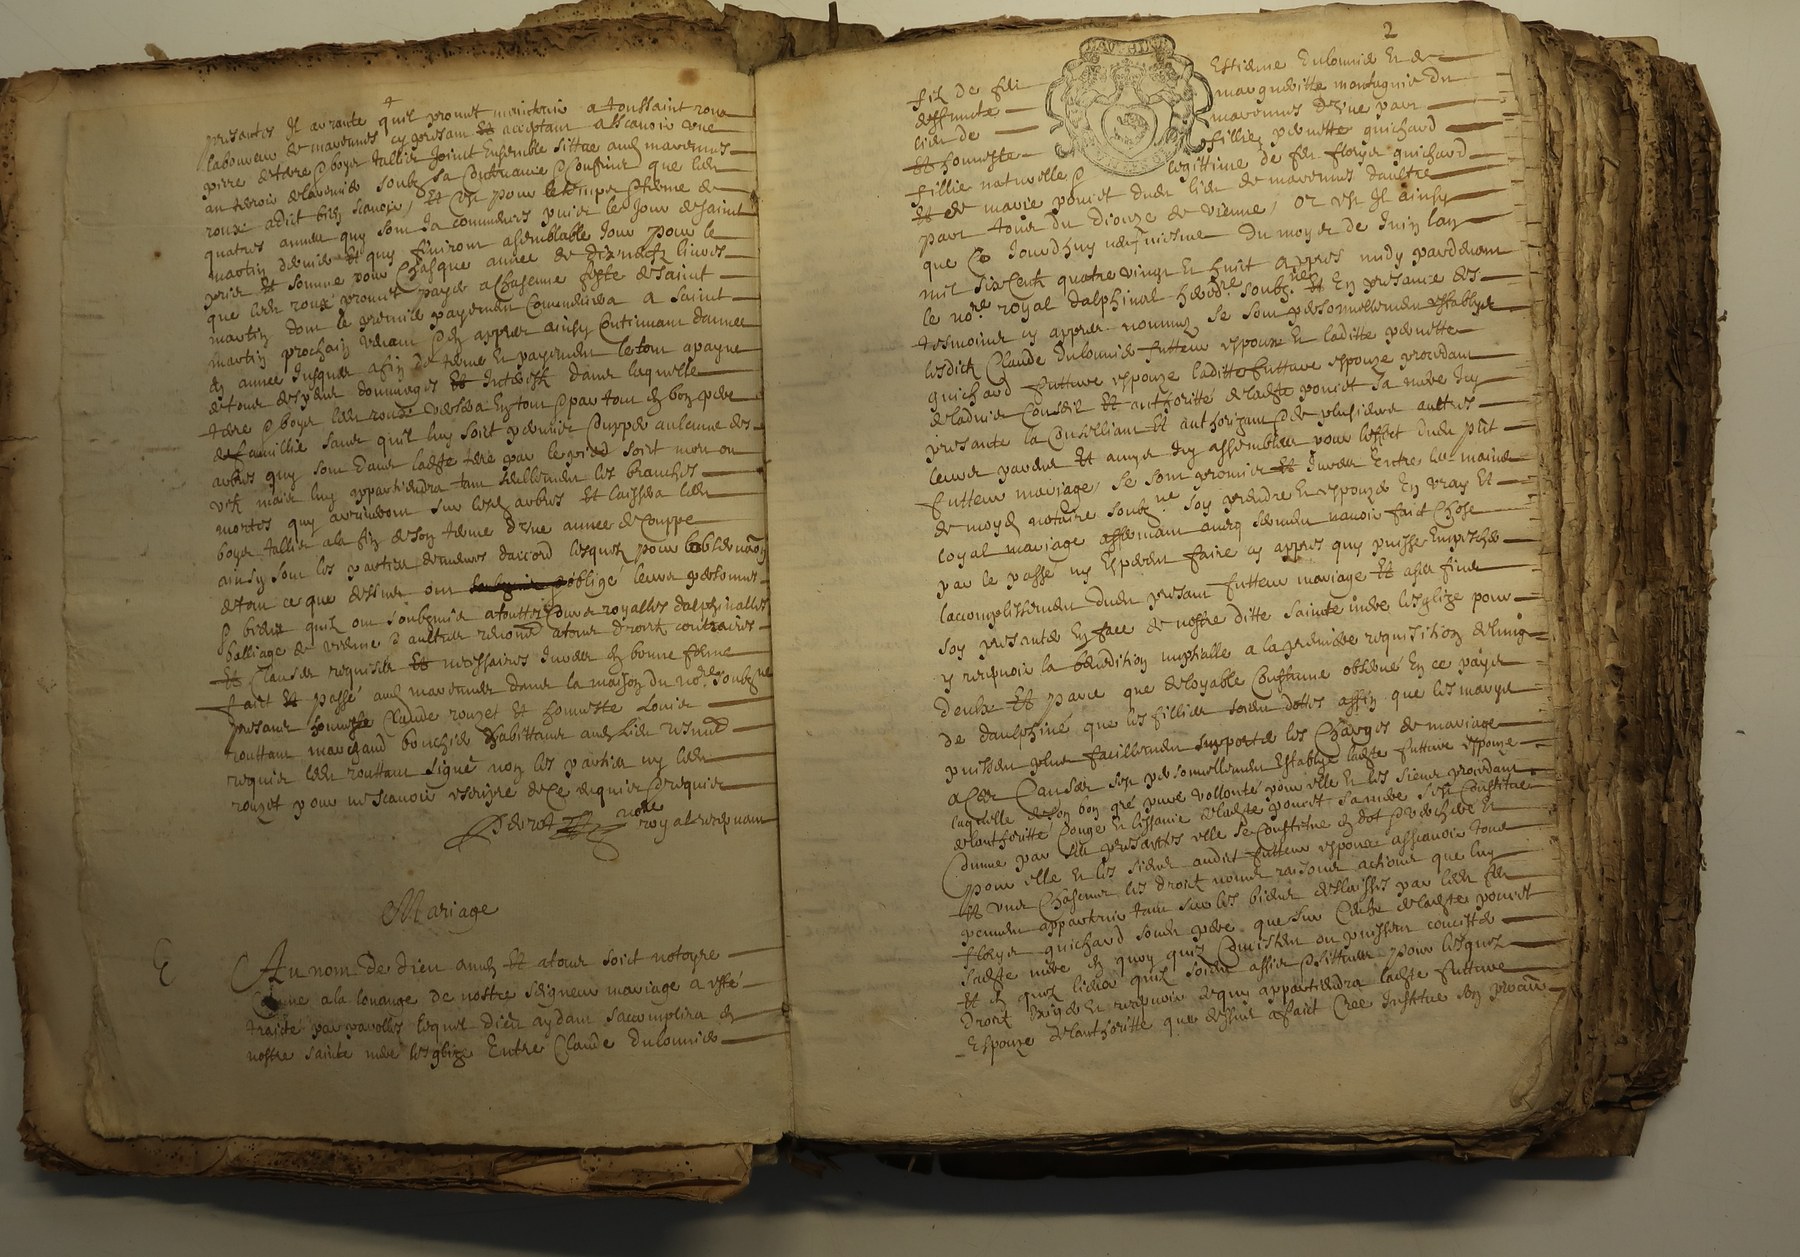 presantes Il arrante quil promet maintenir a toussaint roux
laboureur de marennes cy presant Et acceptant Ascavoir une
piece de terre & boyer tallier Joint Ensemble sittue aud marennes
au terroir de lavernier soubz sa Contenance & Confins que led
roux a dict bien scavoir, Et Cest pour le temps & terme de
quatres annees quy sont Ja commences puis le Jour de saint
martin dernier Et quy finiront a semblable Jour pour le
prix Et somme pour Chasque annee de livres
que led roux promet payer a Chascune feste de saint
martin dont le premier payement Commencera a saint
martin prochain venant & apprès ainsy Continuant dannee
En annee Jusques a fin de terme Et payement le tout a payne
de tous despens dommages Et Interest dans laquelle
terre & boyer led roux versera En tout & par tout En bon pere
de famillie sans quil luy soict permis Coupper aulcune des
arbres quy sont dans ladte terre par le pied soit mort ou
vif mais luy appartiendra tant seullement les branches
mortes quy arriveront sur lesd arbres Et laissera led
boyer tallier a la fin de son terme dune annee de Couppe
ainsy sont les parties demeures daccord lesquels pour lobservaon
de tout ce que dessus ont oblige leurs personnes
& biens quilz ont soubzmis a touttes Cours royalles dalphinalles
balliage de vienne & aultres renoncé a tous droict contraires
Et Clauses requises Et necessaires Juree En bonne forme
faict Et passé aud marennes dans la maison du nore soubzne
presans honneste Claude rouzet Et honneste Louis
routtant marchand bouchier habittans aud Lieu tesmoins
requis led routtant signé non les parties ny led
rouzet pour ne scavoir escripre de Ce enquis & requis
nore
royal recepvant
Mariage
Au nom de dieu amen Et a tous soict notoyre
Comme a la louange de nostre seigneur mariage a esté
traicté par parolles lequel dieu aydant saccomplira En
nostre sainte mere lesglize Entre Claude Dulournier
2
filz de feu Estienne Dulournier Et de
deffuncte margueritte montagnier du
lieu de marennes dune part
Et honneste fillie pernette guichard
fillie naturelle & legittime de feu fleurye guichard
Et de marie poncet dud lieu de marennes daultre
part tous du dioceze de vienne, Or est Il ainsy
que Ce Jourdhuy neufviesme du moys de Juin lan
mil six Cent quatre vingt Et huict apprès midy pardevant
le nore royal dalphinal heredre soubzne Et En presance des
tesmoins cy apprès nommez se sont personnellement establys
lesdicts Claude Dulournier futteur espoux Et laditte pernette
guichard futture espouze laditte futture espouze procedant
de ladvis Conseil Et authoritté de ladte poncet sa mere Icy
presante la Conselliant Et authorizant & de plusieurs aultres
leurs parens Et amys Icy assembles pour leffect dud pnt
futteur mariage, se sont promis Et Jurés Entre les mains
de moyd notaire soubzne soy prendre Et espouzer En vray Et
loyal mariage affermant avecq serment navoir faict Chose
par le passé ny Esperer faire cy apprès quy puisse Empescher
laccomplissement dud presant futteur mariage Et a ses fins
soy presanter En face de nostre ditte sainte mere lesglize pour
y recepvoir la benedition nuptialle a la premiere requisition de lung
deulx Et parce que de loyable Coustume observé En ce pays
de dauphiné que les fillies soient dottes affin que les marys
puissent plus facillement supporter les Charges de mariage
a Ces Causes sest personnellement Establye ladte futture espouze
laquelle de son bon gré pure vollonté pour elle Et les siens procedant
de lauthoritté Congé Et licance de ladte poncet sa mere sest Constitué
Comme par Ces presantes elle se Constitue En dot & verchere Et
pour elle Et les siens audit futteur espoux assavoir tous
Et uns Chascuns les droict noms raisons actions que luy
peuvent appartenir tant sur les biens delaissés par led feu
fleurye guichard son père que sur Ceulx de ladte poncet
sadte mere En quoy quilz Consistent ou puissent concister
Et En quelz lieux quilz soient assis & sittues pour lesquelz
droict Exiger Et recepvoir & quy appartiendra ladte futture
Espouze de lauthoritté que dessus a faict Cree Institue son procur